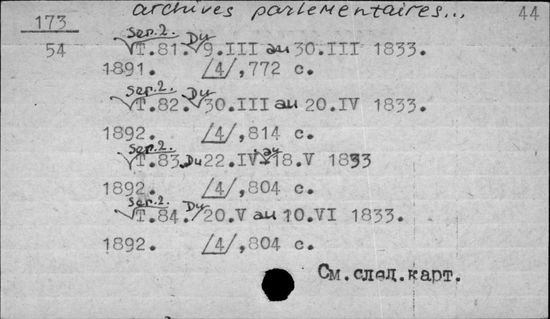 archives parlementaires... 44
173
54
Ser.2. T.81. Du 9.III au 30.III 1833.
1891. /4/,772 с.
Ser.2. T.82. Du 30.III au 20.IV 1833.
1892. /4/,814 с.
Ser.2. T.83. Du 22.IV au 18.V 1833
1892. /4/,804 с.
Ser.2. T.84. Du 20.V au 10.VI 1833.
1892. /4/,804 с.
См.след.карт.